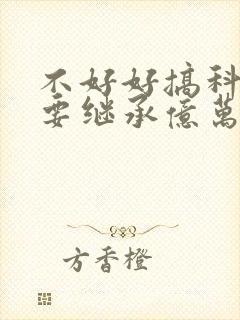 不好好搞科
要继承億萬
方香橙